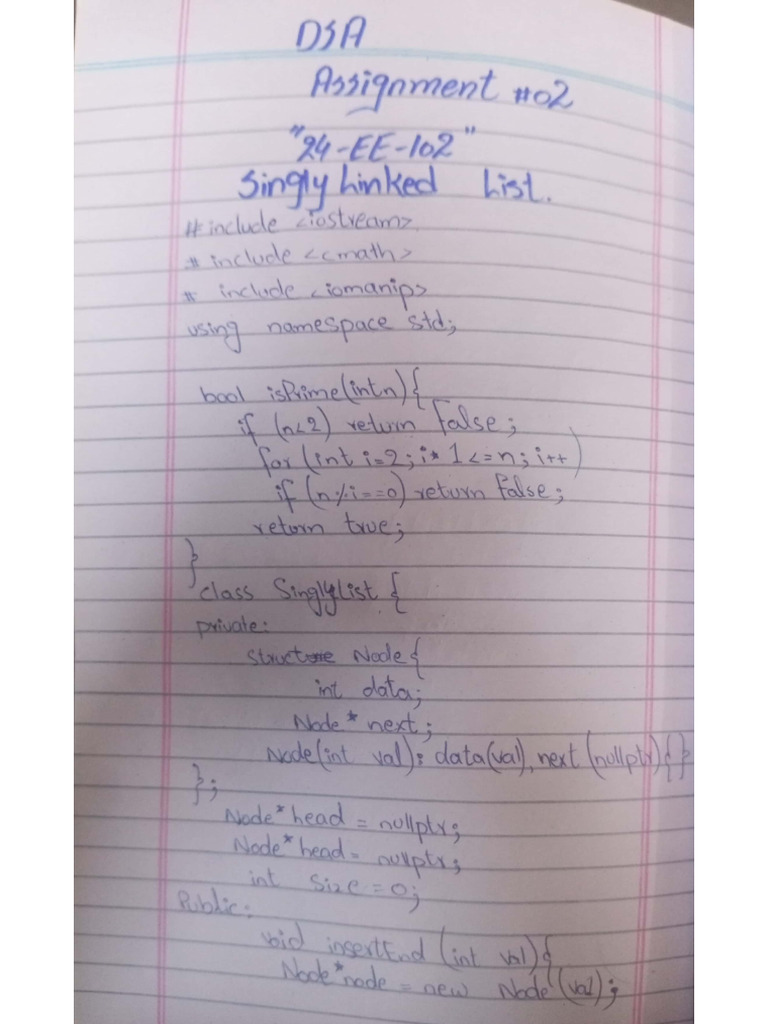 DSA
Assignment #02
"24-EE-102"
Singly Linked List.
#include <iostream>
# include <cmath>
# include <iomanip>
using namespace std;
bool isPrime(int n){
if (n<2) return false;
for (int i=2; i* 1<=n; i++)
if (n%i==0) return false;
return true;
}
class SinglyList {
private:
struct Node{
int data;
Node* next;
Node(int val): data(val), next(nullptr){}
};
Node*head = nullptr;
Node*head = nullptr;
int size = 0;
Public:
void insertEnd (int val){
Node*node = new Node(val);